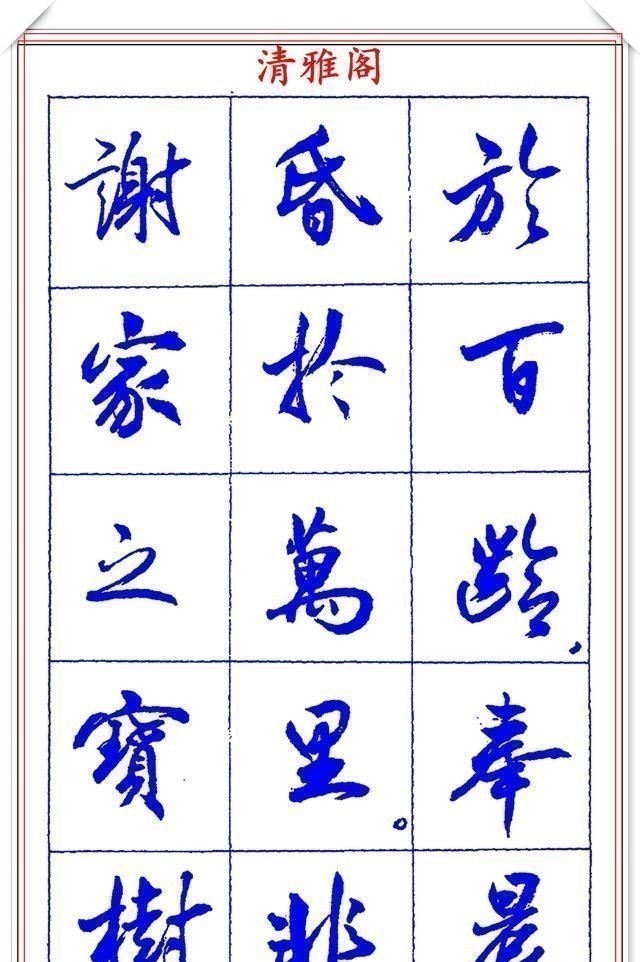 清雅阁
於百齡，奉晨
昏扵萬里。非
謝家之寶樹